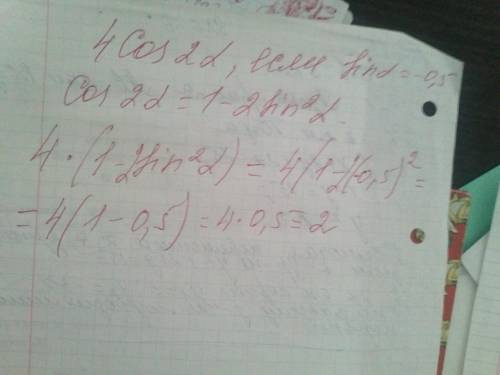 4 cos 2α, если sin α = -0,5
cos 2α = 1 - 2 sin²α.
4 · (1 - 2 sin²α) = 4(1 - 2(-0,5)² =
= 4(1 - 0,5) = 4 · 0,5 = 2